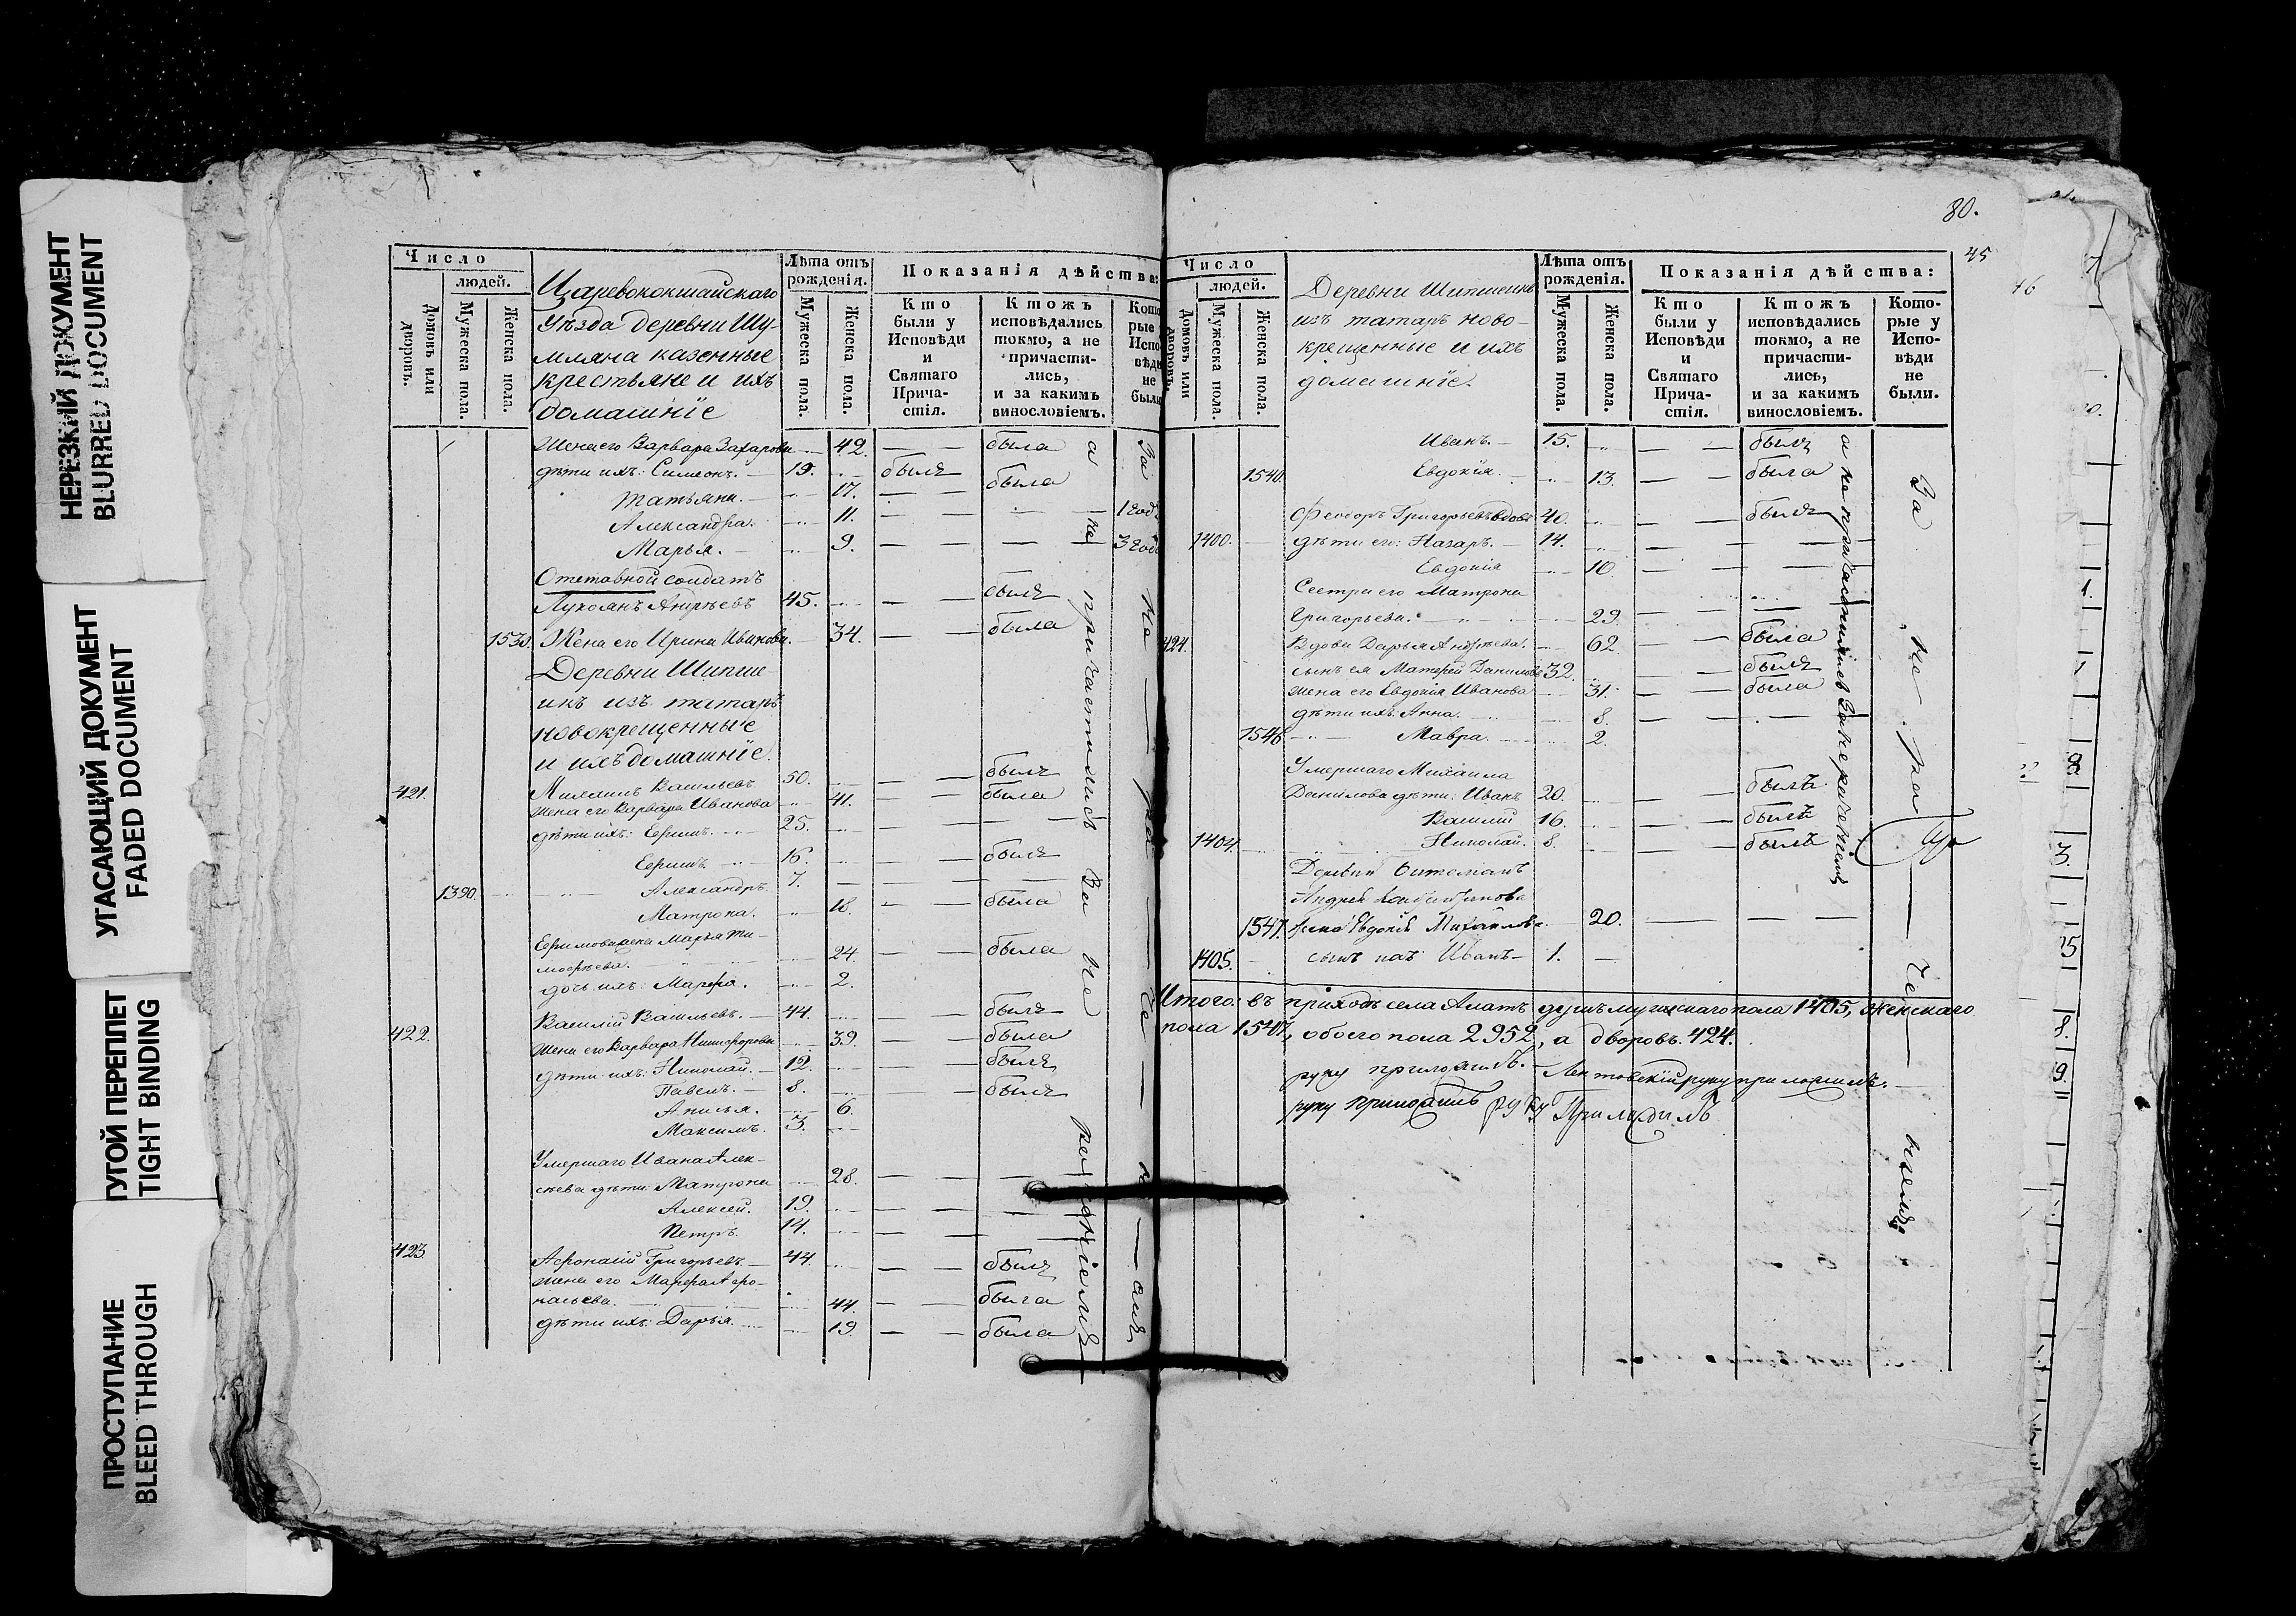 НЕРЕЗКИЙ ДОКУМЕНТ
BLURRED DOCUMENT
УГАСАЮЩИЙ ДОКУМЕНТ
FADED DOCUMENT
ТУГОЙ ПЕРЕПЛЕТ
TIGHT BINDING
ПРОСТУПАНИЕ
BLEED THROUGH
Число
людей.
Домовъ или дворовъ.
Мужеска пола.
Женска пола.
Царевококшайскаго
Уѣзда деревни Шу-
мляна казенные
крестьяне и ихъ
домашнїе
Лѣта отъ рожденія.
Мужеска пола.
Женска пола.
Показанія дѣйства:
Кто были у Исповѣди и Святаго Прича-стія.
Ктожъ исповѣдались токмо, а не причасти-лись, и за какимъ винословіемъ.
Жена его Варвара Захарова 42. была
дѣти ихъ: Симеонъ. 19. былъ
Татьяна. 17. была
Александра. 11. 1 годъ
Марья. 9. 3 года
Отставной солдатъ
Лукоянъ Андреевъ 45. былъ
Жена его Ирина Иванова. 34. была
Деревни Шипше-
икъ изъ татаръ
новокрещенные
и ихъ домашнїе.
421. Васильевъ 50. былъ
жена его Варвара Иванова 41. была
дѣти ихъ: Ефимъ. 25.
Ефимъ 16. былъ
1390. Александръ. 7.
Матрона. 18. была
Ефимова жена Марья Ти-
мофѣева. 24. была
дочь ихъ: Марѳа. 2.
422. Василій Васильевъ. 44. былъ
жена его Варвара Никифорова 39. была
дѣти ихъ: Николай. 12. былъ
Павелъ. 8. былъ
Анисья. 6.
Максимъ. 3.
Умершаго Ивана Алек-
сѣева дѣти: Матрона 28.
Алексей. 19.
Петръ. 14.
423. Афонасій Григорьевъ. 44. былъ
жена его Марфа Афо-
насьева. 44. была
дѣти ихъ: Дарья. 19. была
а не причастились за не раченіемъ
80.
45
46
Число
людей.
Домовъ или дворовъ.
Мужеска пола.
Женска пола.
Деревни Шипшеикъ
изъ татаръ ново-
крещенные и ихъ
домашнїе.
Лѣта отъ рожденія.
Мужеска пола.
Женска пола.
Показанія дѣйства:
Кто были у Исповѣди и Святаго Прича-стія.
Ктожъ исповѣдались токмо, а не причасти-лись, и за какимъ винословіемъ.
Кото-рые у Испо-вѣди не были.
Иванъ. 15. былъ
1540. Евдокія. 13. была
Феодоръ Григорьевъ вдовъ 40. былъ
1400. дѣти его: Назаръ. 14.
Евдокія 10.
Сестра его Матрона
Григорьева. 29.
424. Вдова Дарья Андреева. 62. была
сынъ ея Матфей Даниловъ 32. былъ
жена его Евдокія Иванова 31. была
дѣти ихъ: Анна. 8.
1546 Мавра. 2.
Умершаго Михаила
Данилова дѣти: Иванъ 20. былъ
Василій 16. былъ
1404 Николай. 8. былъ
Деревни
Андрей
1547. жена Евдокія Михайлова. 20.
1405. сынъ ихъ Иванъ 1.
а не причастились за не раченіемъ
За не ра че ніемъ
Итого: въ приходѣ села Алатъ душъ мужескаго пола 1405, женскаго
пола 1547, обоего пола 2952, а дворовъ 424.
руку приложилъ. руку приложилъ.
руку приложилъ руку Приложилъ